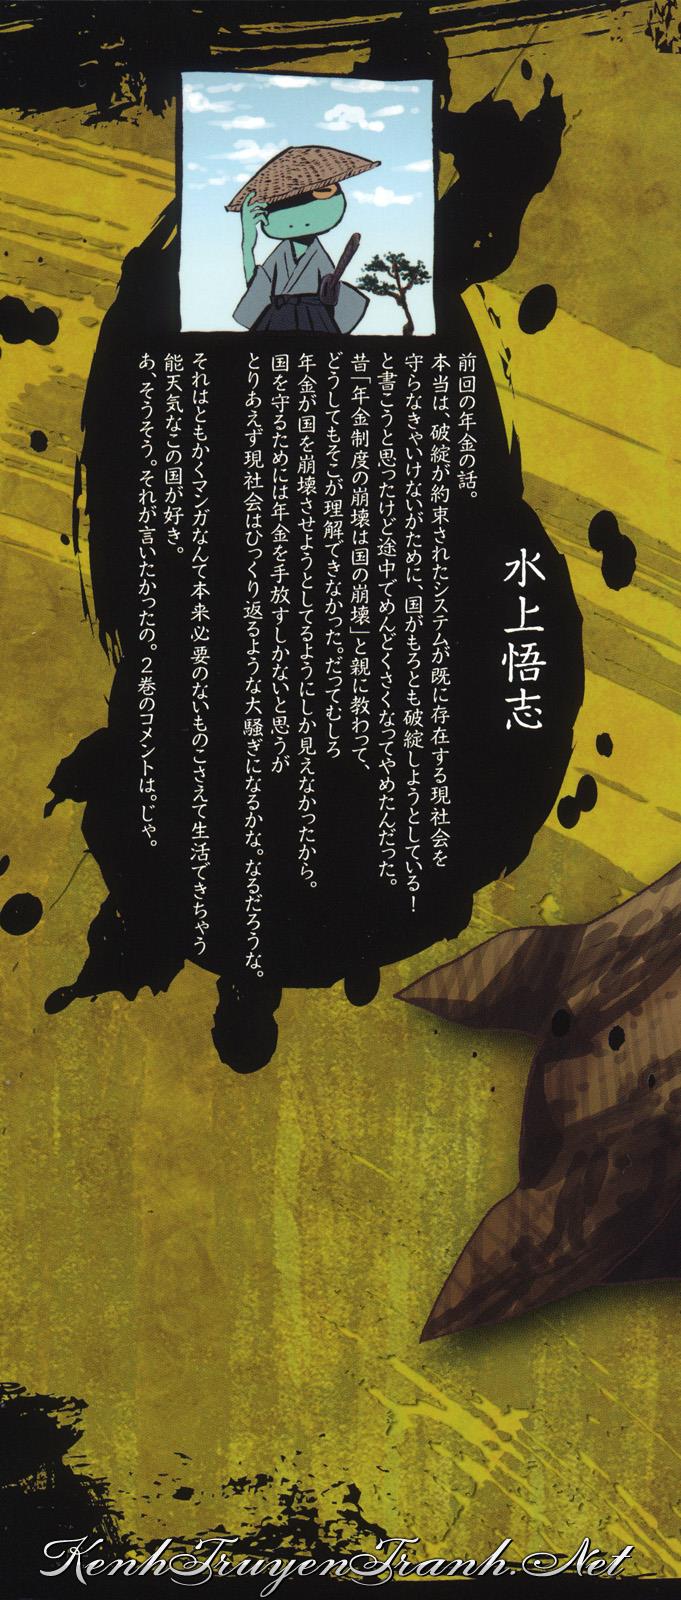 水上悟志
前回の年金の話。
本当は、破綻が約束されたシステムが既に存在する現社会を
守らなきゃいけないがために、国がもろとも破綻しようとしている!
と書こうと思ったけど途中でめんどくさくなってやめたんだった。
昔「年金制度の崩壊は国の崩壊」と親に教わって、
どうしてもそこが理解できなかった。だってむしろ
年金が国を崩壊させようとしてるようにしか見えなかったから。
国を守るためには年金を手放すしかないと思うが
とりあえず現社会はひっくり返るような大騒ぎになるかな。なるだろうな。
それはともかくマンガなんて本来必要のないものこさえて生活できちゃう
能天気なこの国が好き。
あ、そうそう。それが言いたかったの。2巻のコメントは。じゃ。
KenhTruyenTranh.Net